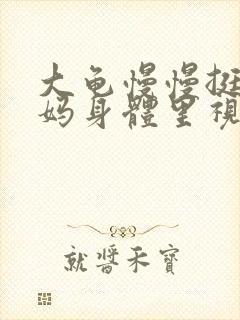 大龟慢慢挺
妈身體里視
就醬禾寶